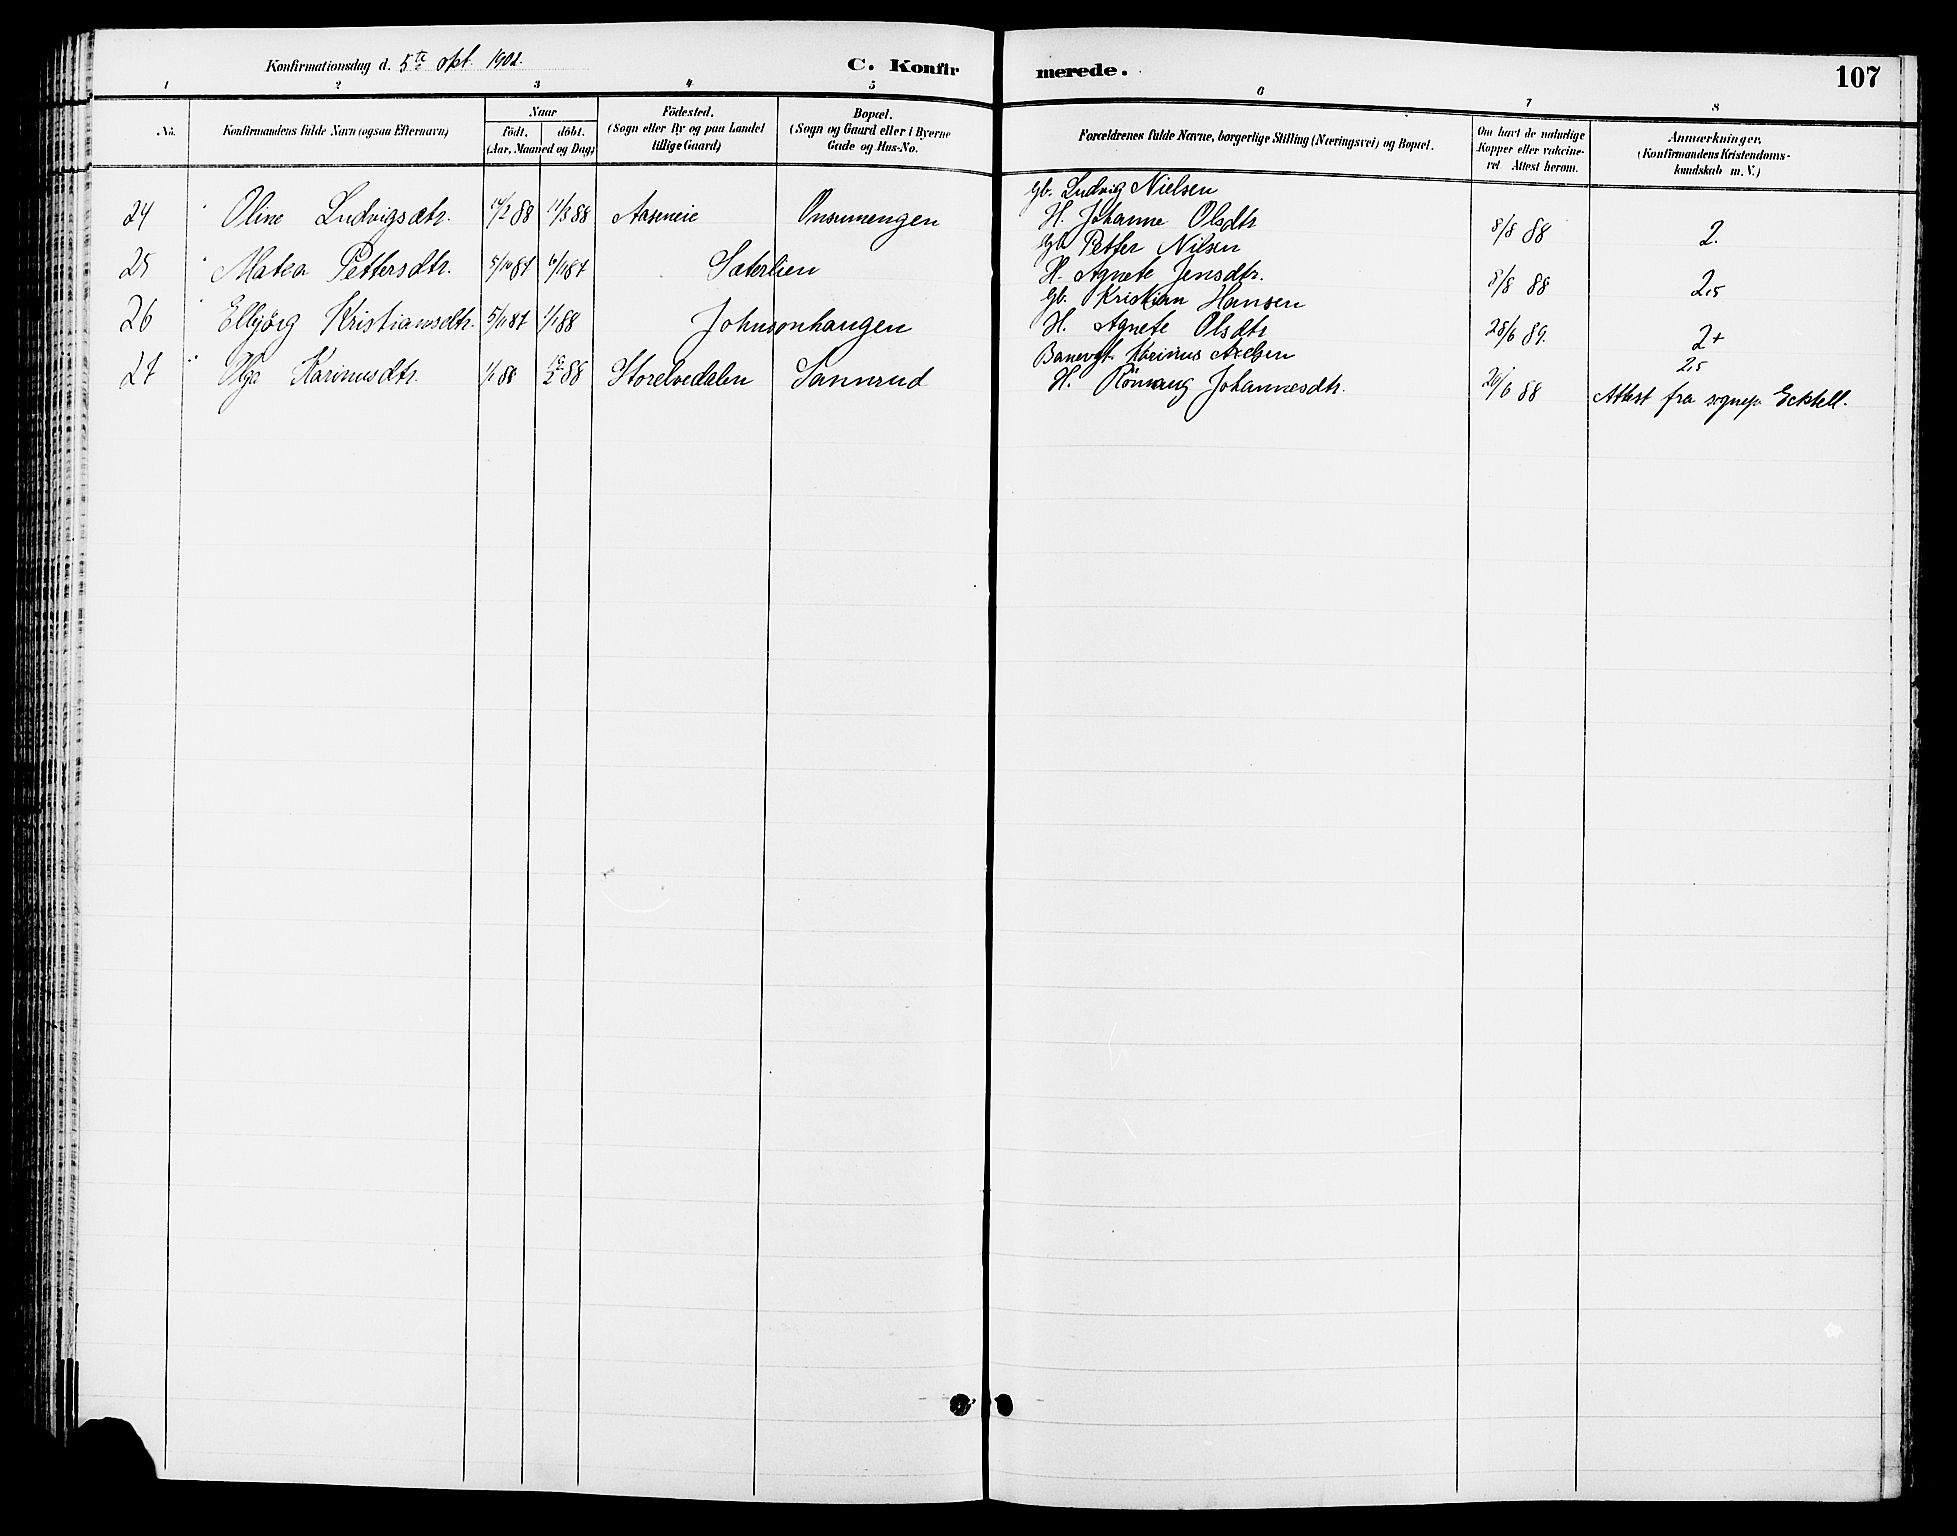 Konfirmationsdag d. 5te okt. 1902. C. Konfirmerede. 107
1 2 3 4 5 6 7 8
No. Konfirmandens fulde Navn (ogsaa Efternavn) Naar födt. döbt. (Aar, Maaned og Dag) Födested. (Sogn eller By og paa Landet tillige Gaard) Bopæl. (Sogn og Gaard eller i Byerne Gade og Hus-No. Forældrenes fulde Navne, borgerlige Stilling (Næringsvei) og Bopæl. Om havt de naturlige Kopper eller vakcineret Attest herom. Anmærkninger. (Konfirmandens Kristendomskundskab m. V.)
24 Oline Ludvigsdtr. 14/2 88 11/3 88 Aaseneie Onsumengen Gb. Ludvig Nielsen
H. Johanne Olsdtr 8/8 88 2.
25 Matea Pettersdtr. 5/10 87 6/11 87 Sæterlien Gb. Petter Nilsen
H. Agnete Jensdtr. 8/8 88 2,5
26 Elbjörg Kristiansdtr. 5/11 87 1/1 88 Johnsonhaugen Gb. Kristian Hansen
H. Agnete Olsdtr 25/6 89. 2+
27 Olga Karinusdtr. 1/1 88 88 Storelvedalen Sannrud Banevgt. Karinus Axelsen 2,5
H. Römaug Johannesdtr. 26/6 88 Attest fra sognepr Ecktell.